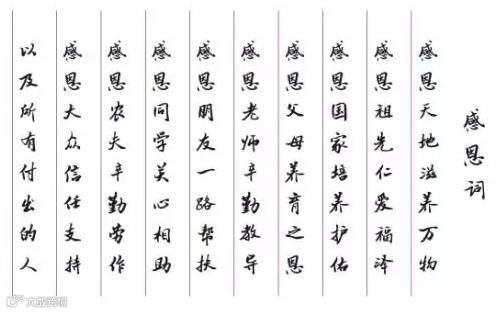 感恩词
感恩天地滋养万物
感恩祖先仁爱福泽
感恩国家培养护佑
感恩父母养育之恩
感恩老师辛勤教导
感恩朋友一路帮扶
感恩同学关心相助
感恩农夫辛勤劳作
感恩大众信任支持
以及所有付出的人